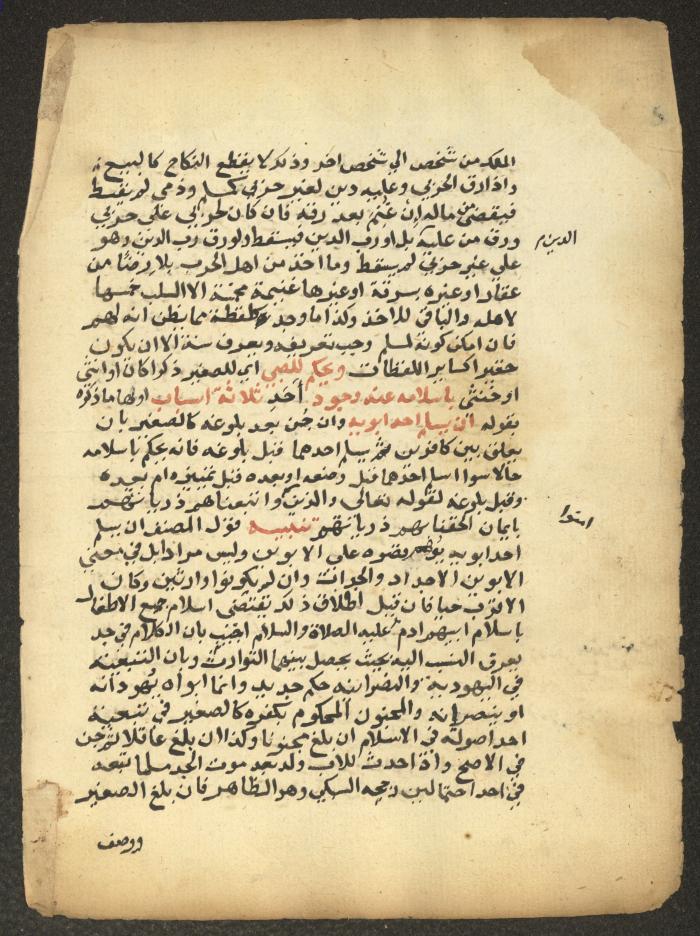 الملك من شخص الي شخص اخر وذلك لا يقطع النكاح كالبيع
واذا رق الحربي وعليه دين لغير حربي كمسلم وذمي لم يسقط
فيقضى من ماله ان غنم بعد رقه فان كان لحربي على حربي
ورق من عليه بل او رب الدين فيسقط ولو رق رب الدين وهو
الدين
علي غير حربي لم يسقط وما اخذ من اهل الحرب بلا رضا من
عقار او غيره بسرقة او غيرها غنيمة مخمسة الا السلب خمسها
لاهله والباقي للاخذ وكذا ما وجد كلقطة مما يظن انه لهم
فان امكن كونه لمسلم وجب تعريفه ويعرف سنة الا ان يكون
حقيرا كساير اللقطات ويحكم للصبي اي للصغير ذكرا كان او انثى
او خنثى باسلامه عند وجود احد ثلاثة اسباب اولها ما ذكره
بقوله ان يسلم احد ابويه وان جن بعد بلوغه كالصغير بان
يعلق بين كافرين ثم يسلم احدهما قبل بلوغه فانه يحكم باسلامه
حالا سوا اسلم احدهما قبل وضعه او بعده قبل تمييزه ام بعده
وقبل بلوغه لقوله تعالى والذين امنوا واتبعناهم ذرياتهم
بايمان الحقنا بهم ذرياتهم تنبيه قول المصنف ان يسلم
احد ابويه يوهم قصره على الابوين وليس مرادا بل في معنى
الابوين الاجداد والجدات وان لم يكونوا وارثين وكان
الاقرب حيا فان قيل اطلاق ذلك يقتضى اسلام جميع الاطفال
باسلام ابيهم ادم عليه الصلاة والسلام اجيب بان الكلام في جد
يعرف النسب اليه بحيث يحصل بينهما التوارث وبان التبعية
في اليهودية والنصرانية حكم جديد وانما ابواه يهودانه
او ينصرانه والمجنون المحكوم بكفره كالصغير في تبعية
احد اصوله في الاسلام ان بلغ مجنونا وكذا ان بلغ عاقلا ثم جن
في الاصح واذا حدث للاب ولد بعد موت الجد مسلما تبعه
في احد احتمالين رجحه السبكي وهو الظاهر فان بلغ الصغير
ووصف